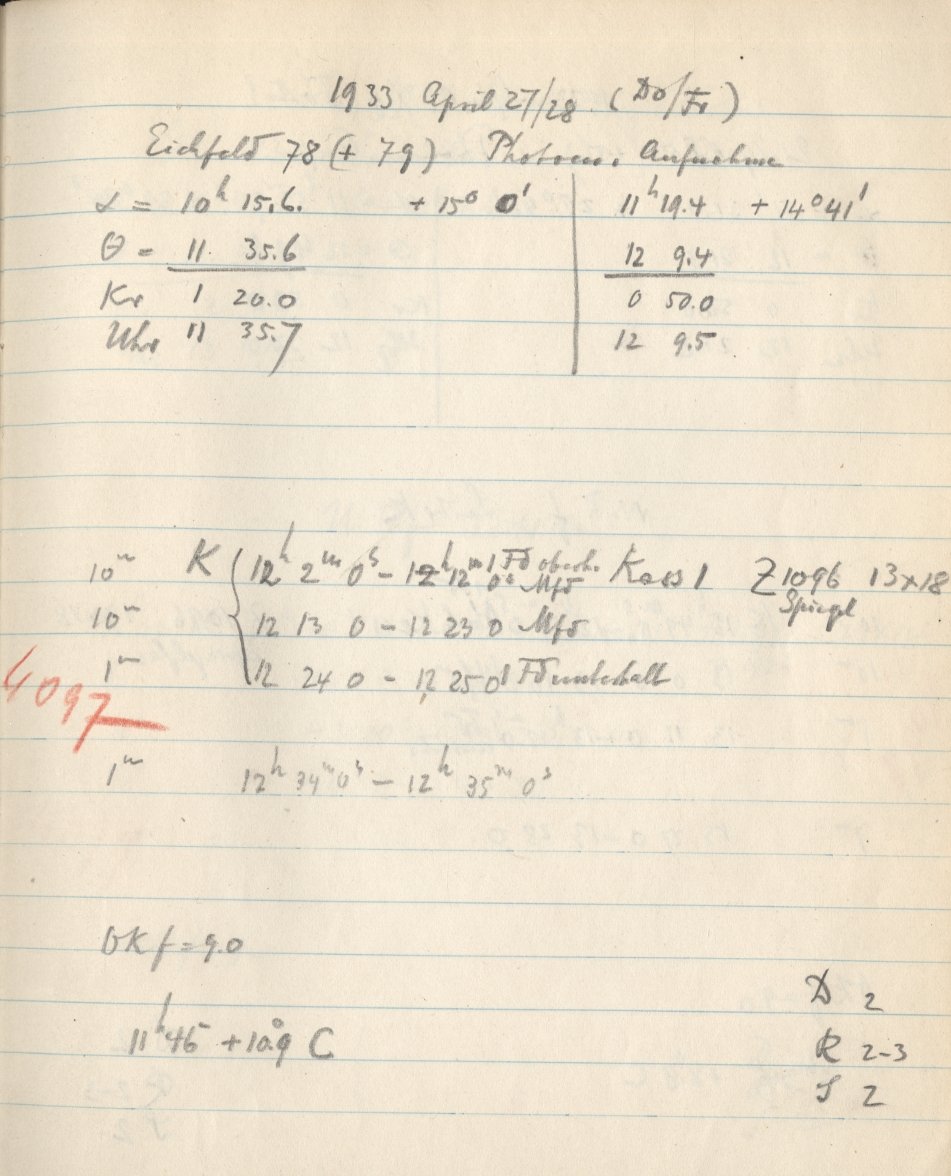 1933 April 27/28 (Do/Fr)
Eichfeld 78 (+ 79) Photom. Aufnahme
α = 10h 15.6. + 15° 0' 11h 19.4 + 14° 41'
θ = 11 35.6 12 9.4
Kr 1 20.0 0 50.0
Uhr 11 35.7 12 9.5
10m K 12h 2m 0s - 12h 12m 0s Kass 1 Z 1096 13×18
Spiegl
10m 12 13 0 - 12 23 0
1m 12 24 0 - 12 25 0
4097
1m 12h 34m 0s - 12h 35m 0s
OKf = 9.0
11h 45 + 10.9° C
D 2
R 2-3
S 2